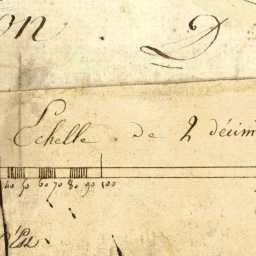 on D
Echelle de 2 décim
40 50 60 70 80 90 100